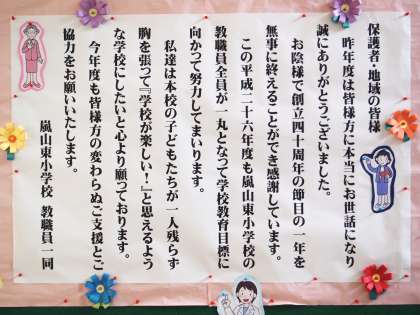 保護者・地域の皆様
昨年度は皆様方に本当にお世話になり
誠にありがとうございました。
お陰様で創立四十周年の節目の一年を
無事に終えることができ感謝しています。
この平成二十六年度も嵐山東小学校の
教職員全員が一丸となって学校教育目標に
向かって努力してまいります。
私達は本校の子どもたちが一人残らず
胸を張って『学校が楽しい!』と思えるよう
な学校にしたいと心より願っております。
今年度も皆様方の変わらぬご支援とご
協力をお願いいたします。
嵐山東小学校 教職員一同